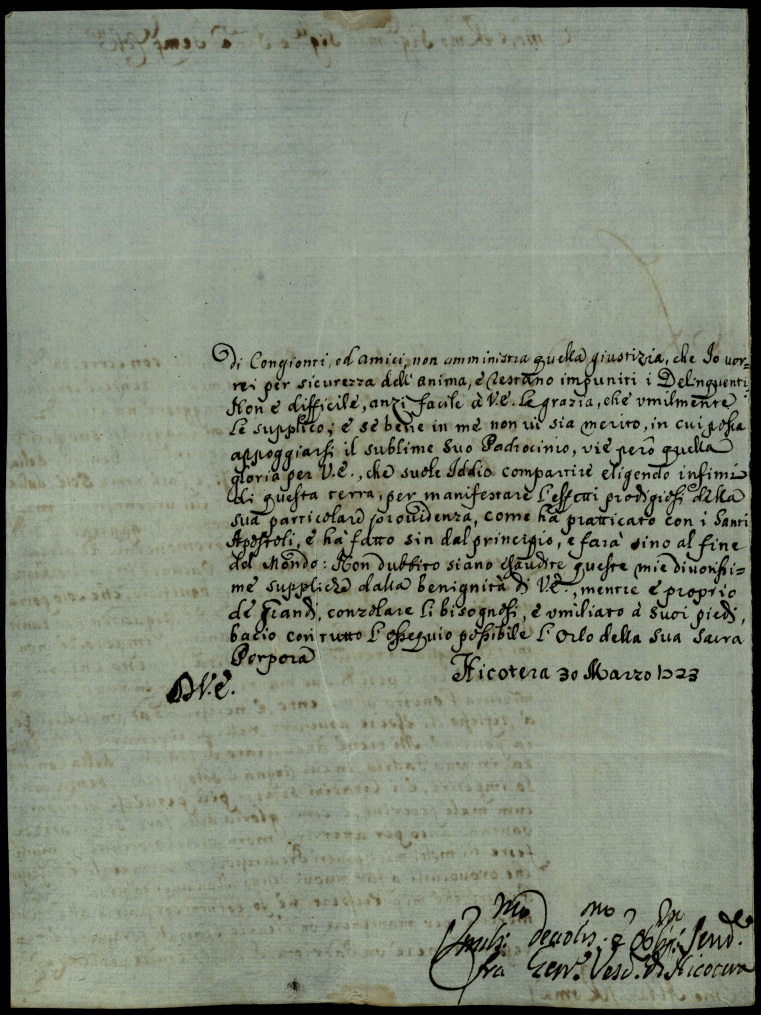 Di Congionti, ed amici, non amministra quella giustizia, che Io vor=
rei per sicurezza dell'anima, e restano impuniti i Delinquenti.
Non è difficile, anzi facile à V.E. la grazia, che umilmente
Le supplico; e se bene in me non vi sia merito, in cui possa
appoggiarsi il sublime Suo Padrocinio, vi è però quella
gloria per V.E., che suole Iddio compartire eligendo infimi
di questa terra, per manifestare l'effetti prodigiosi della
sua particolare providenza, come hà pratticato con i Santi
Apostoli, e hà fatto sin dal principio, e farà sino al fine
del Mondo: Non dubbito siano esaudite queste mie divotissi=
me suppliche dalla benignità di V.E., mentre è proprio
de Grandi, conzolare li bisognosi, e umiliato à Suoi piedi,
bacio con tutto l'ossequio possibile l'Orlo della Sua Sacra
Porpora
Nicotera 30 Marzo 1723
D V.E.
Umilis.mo devotis.mo e Obblig. Serv.e
fra Vesc.o di Nicotera